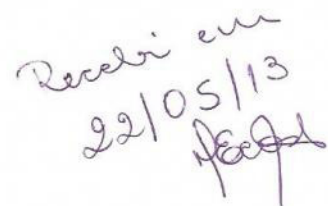 Recebi em
22/05/13